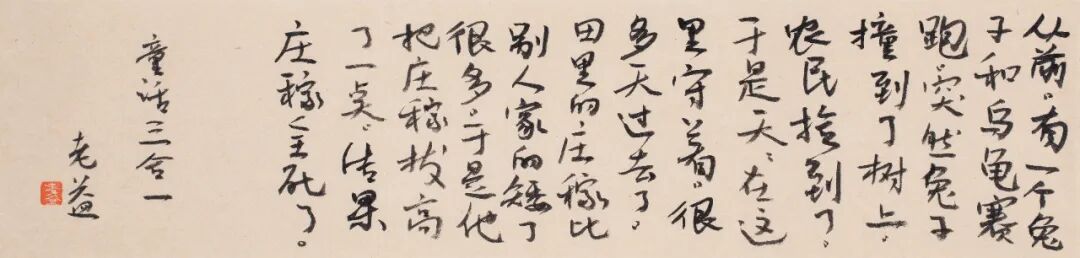 从前。有一个兔
子和乌龟赛
跑突然兔子
撞到了树上。
农民捡到了。
于是天天在这
里守着。很
多天过去了。
田里的庄稼比
别人家的矮了
很多。于是他
把庄稼拔高
了一点。结果
庄稼全死了。
童话三合一
老益